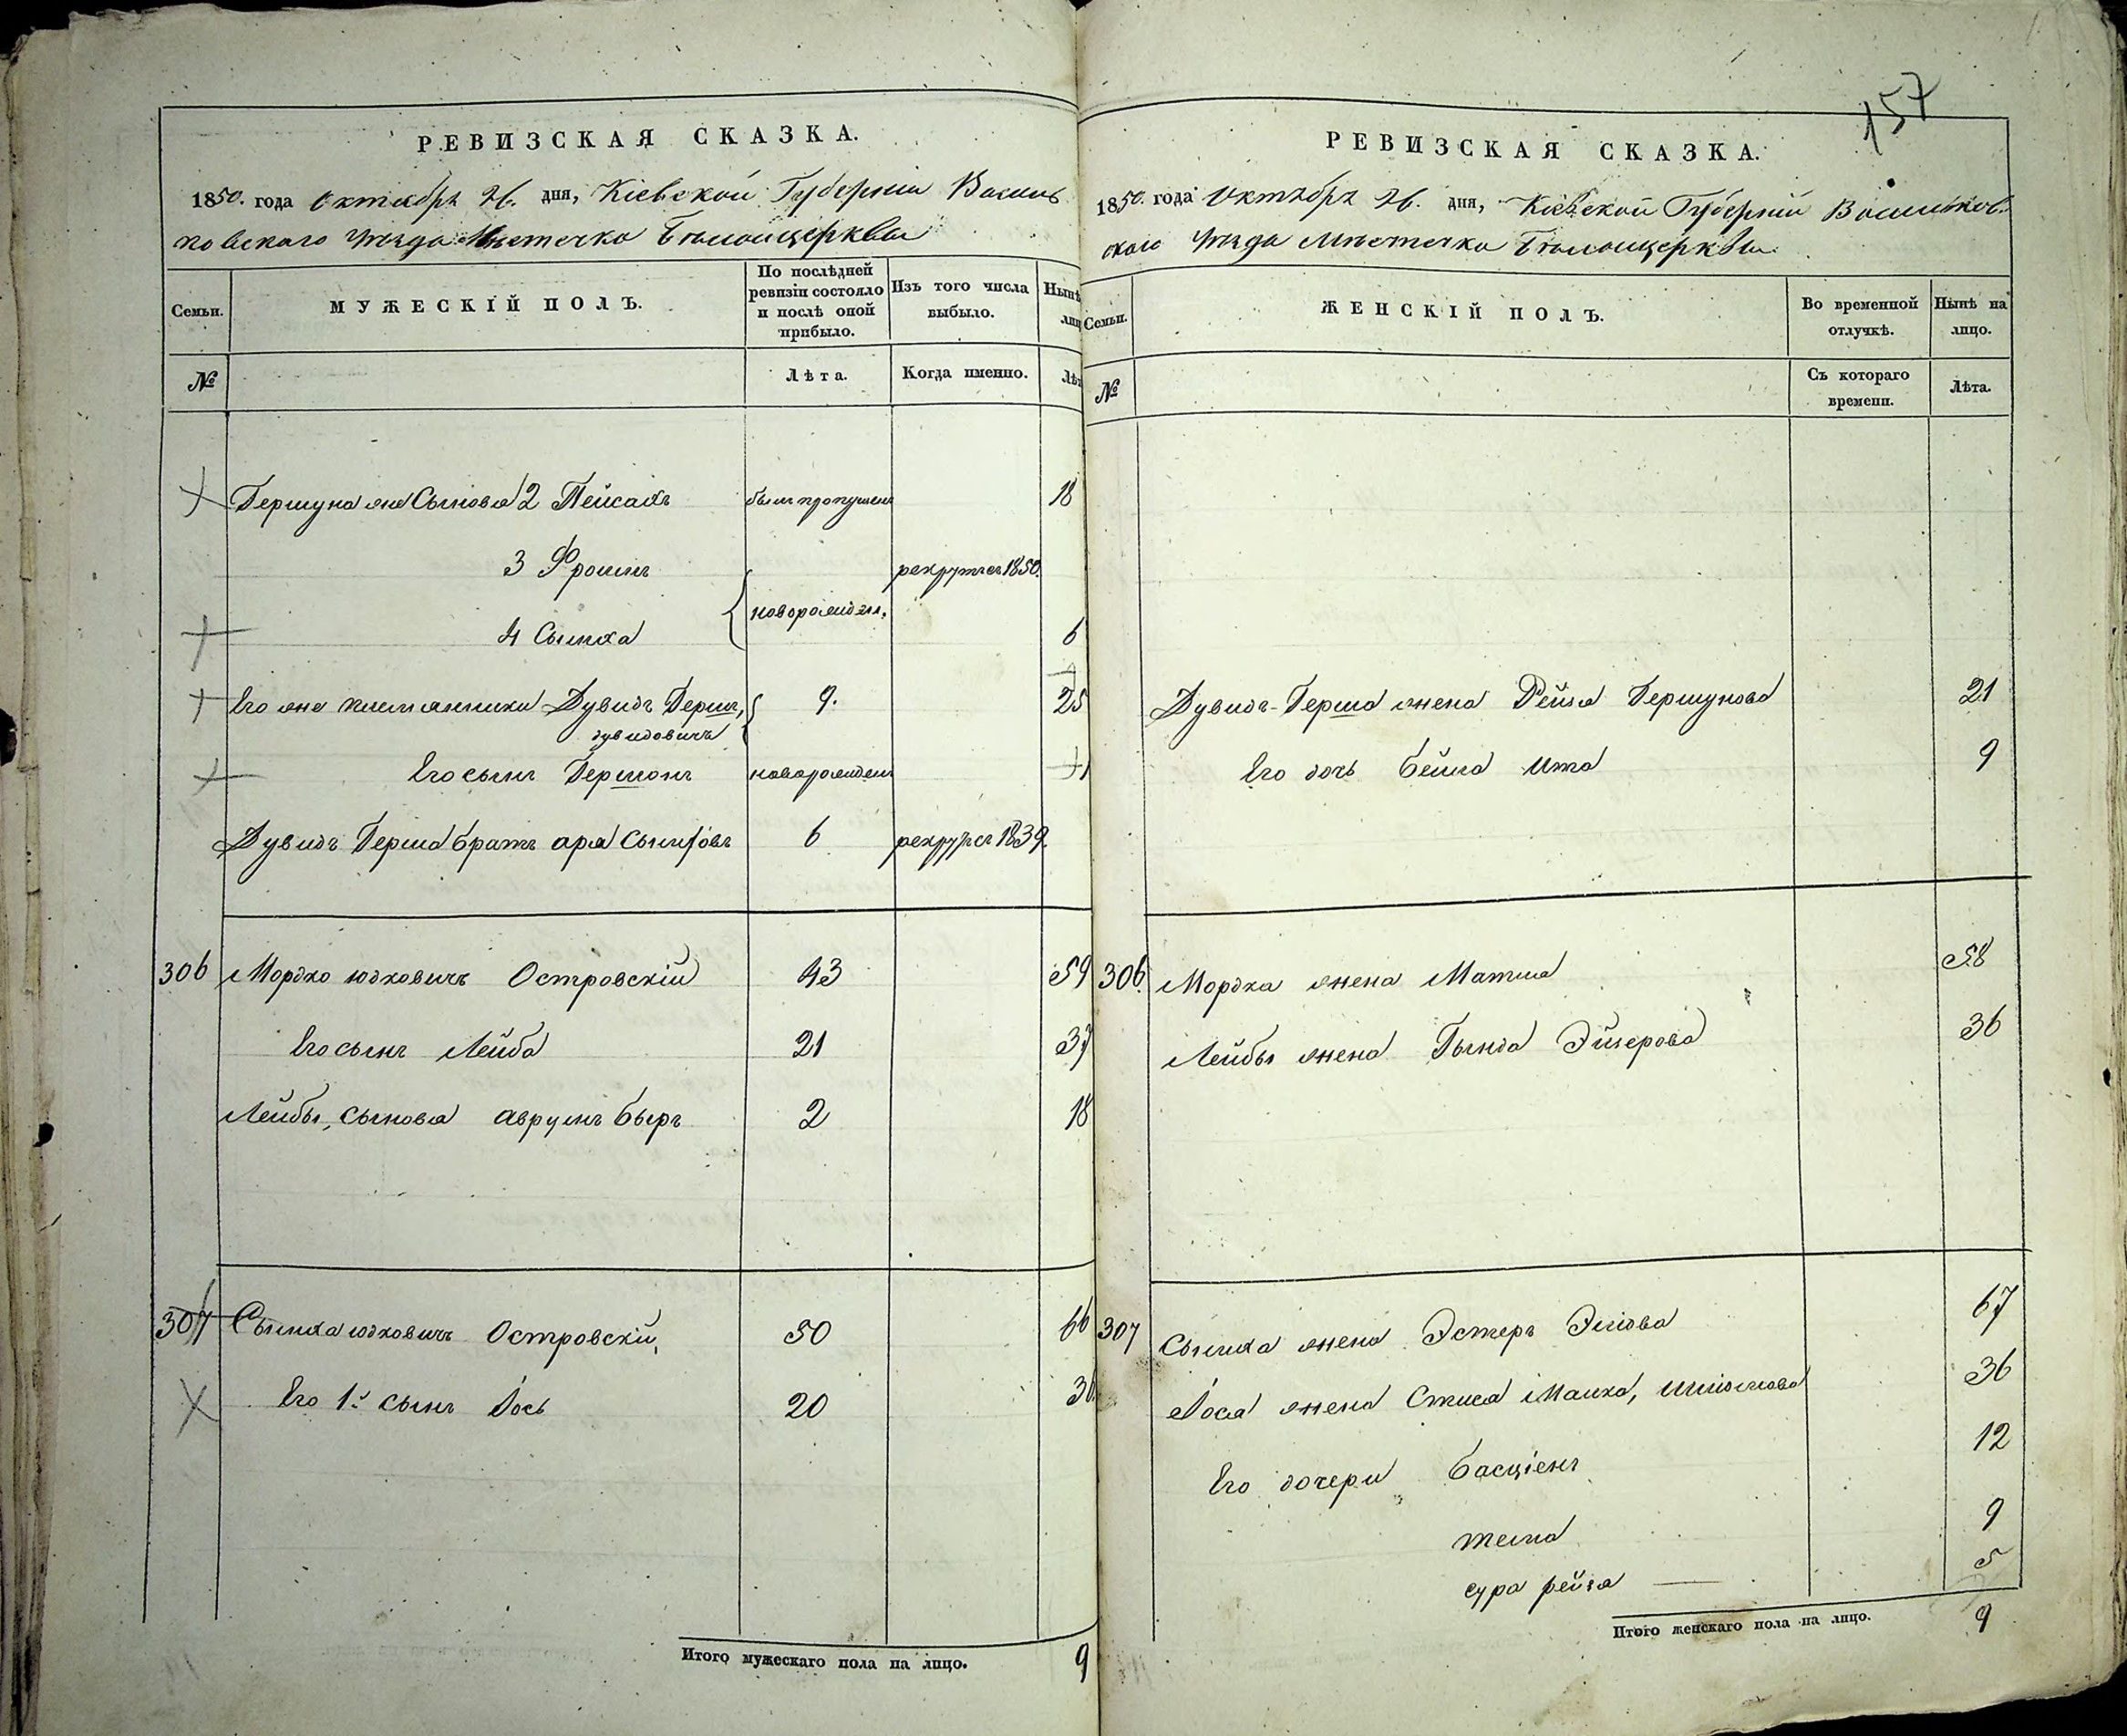 157
РЕВИЗСКАЯ СКАЗКА.
1850. года Октября 26. дня, Кіевской Губерніи Василь
ковскаго Уѣзда Мѣстечка Бѣлоицеркви
Семьи.
МУЖЕСКІЙ ПОЛЪ.
По послѣдней ревизіи состояло и послѣ оной прибыло.
Изъ того числа выбыло.
Нынѣ
лиц
№
Лѣта.
Когда именно.
Лѣт
Гершуна же Сыновья 2 Пейсахъ былъ пропущенъ 18
3 Фроимъ рекрутъ съ 1850.
новорожден,
4 Сымха 6
Его же племянники Дувидъ Герш, 9. 25
дувидовичъ
Его сынъ Гершонъ новорожденъ 1
Дувидъ Герша братъ 6 1839.
306 Мордко юдковичъ Островскій 43 59
Его сынъ Лейба 21 37
Лейбы, сыновья аврумъ беръ 2 18
307 Сымха юдковичъ Островскій, 50 66
Его 1й сынъ Іось 20 36
Итого мужескаго пола на лицо. 9
РЕВИЗСКАЯ СКАЗКА.
1850. года Октября 26. дня, Кіевской Губерніи Васильков.
скаго Уѣзда Мѣстечка Бѣлоицеркви.
Семьи.
ЖЕНСКІЙ ПОЛЪ.
Во временной отлучкѣ.
Нынѣ на лицо.
№
Съ котораго времени.
Лѣта.
Дувидъ-Герша жена Рейза Гершунова 21
Его дочь бейла ита 9
306. Мордка жена Матля 58
Лейбы жена Гында 36
307 Сымха жена Эстеръ 67
Іося жена Малка, 36
Его дочери басціенъ 12
9
сура рейза 5
Итого женскаго пола на лицо. 9